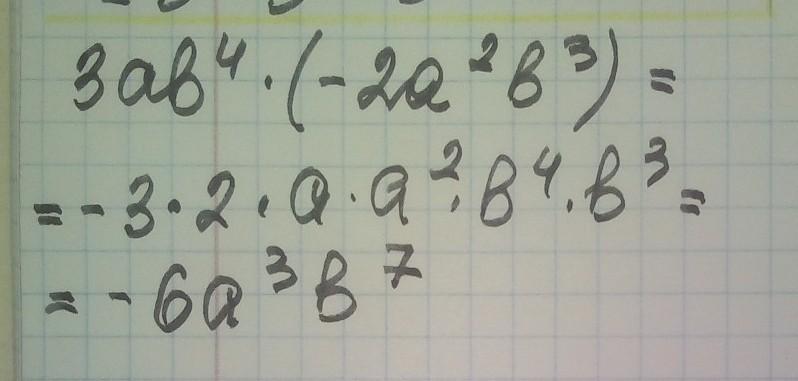 3ab⁴·(-2a²b³)=
=-3·2·a·a²·b⁴·b³=
=-6a³b⁷